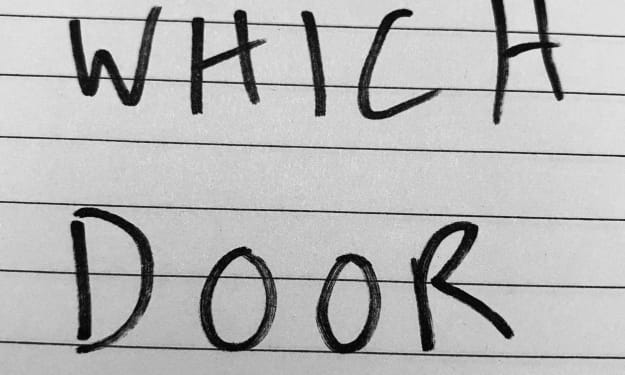 WHICH
DOOR